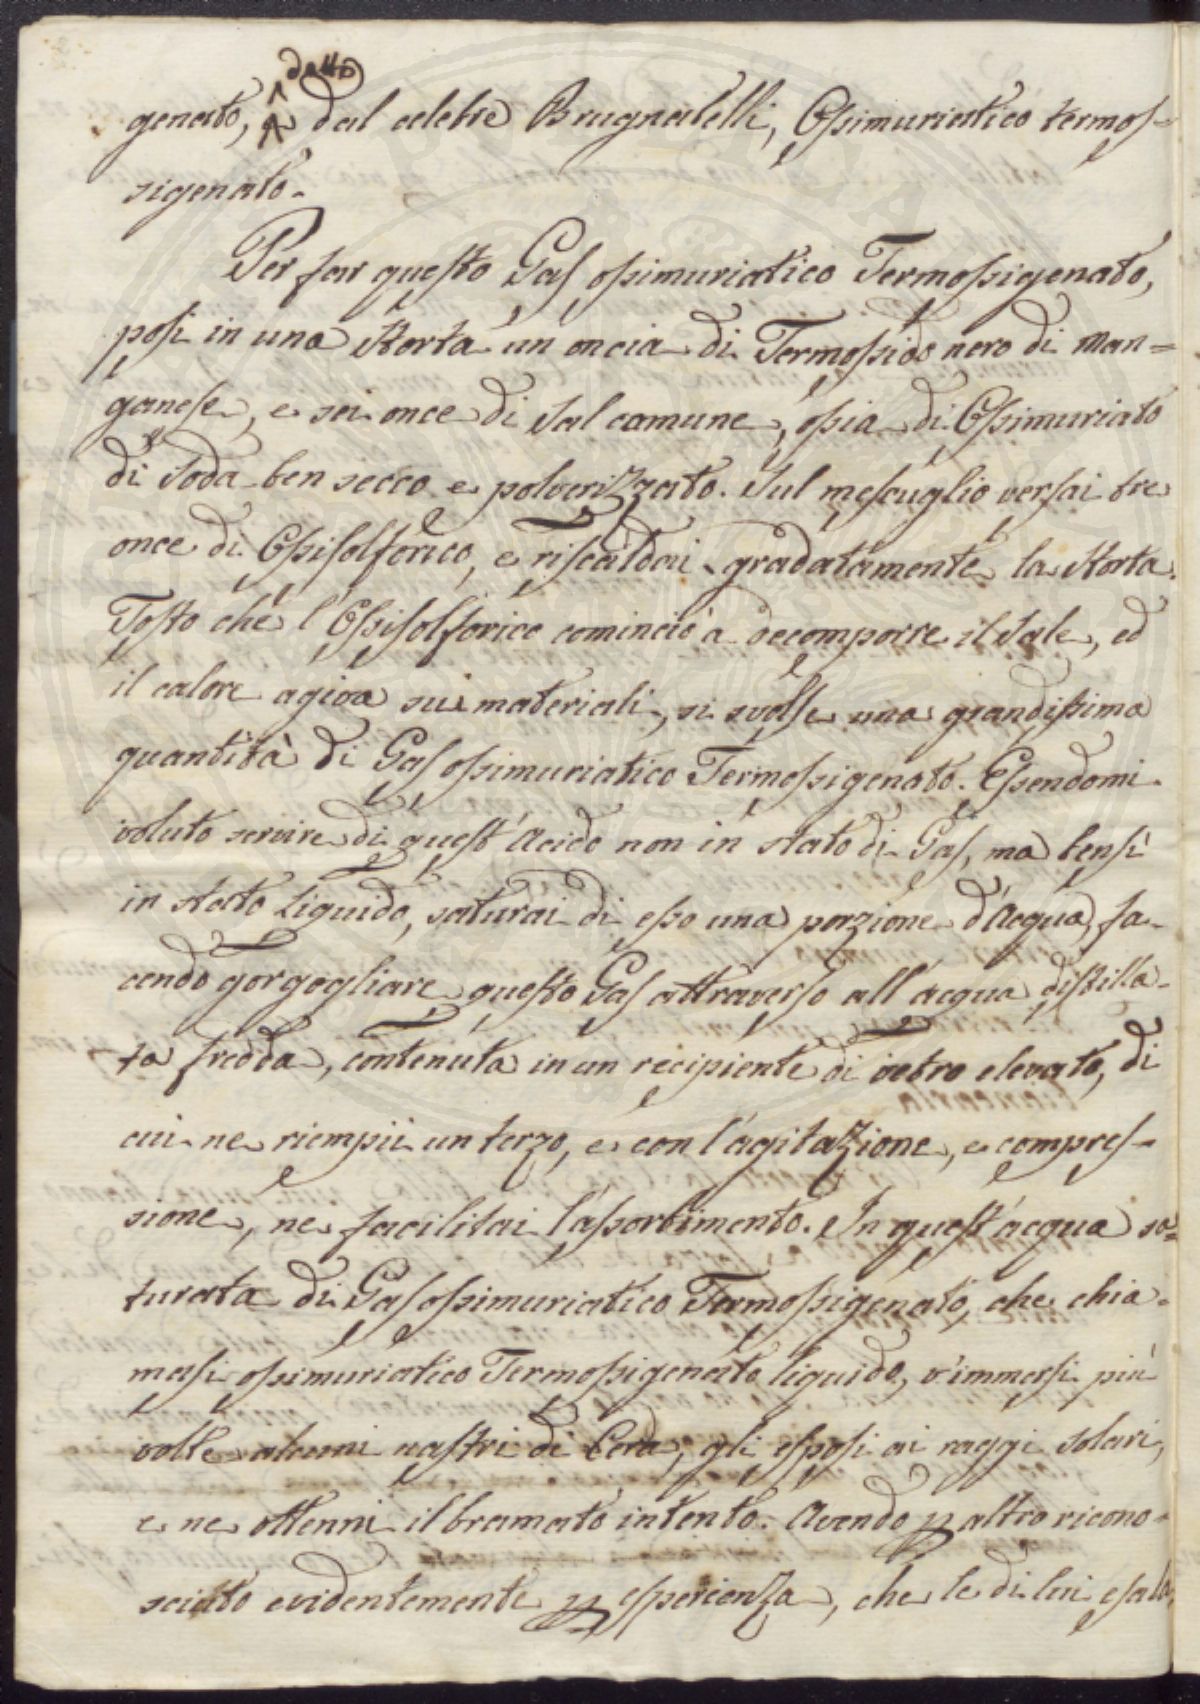 detto
genato, dal celebre Brugnatelli, Ossimuriatico termos-
sigenato.
Per far questo Gas ossimuriatico Termossigenato,
posi in una Storta un oncia di Termossido nero di Man=
ganese, e sei once di Sal comune, ossia di Ossimuriato
di Soda ben secco e polverizzato. Sul mescuglio versai tre
once di Ossisolforico, e riscaldai gradatamente la Storta.
Tosto che l'Ossisolforico cominciò a decomporre il Sale, ed
il calore agiva sui materiali, si svolse una grandissima
quantità di Gas ossimuriatico Termossigenato. Essendomi
voluto servire di quest'Acido non in stato di Gas, ma bensì
in stato Liquido, saturai di esso una porzione d'Acqua, fa-
cendo gorgogliare questo Gas attraverso all'acqua distilla-
ta fredda, contenuta in un recipiente di vetro elevato, di
cui ne riempii un terzo, e con l'agitazione, e compres-
sione, ne facilitai l'assorbimento. In quest'acqua sa=
turata di Gas ossimuriatico Termossigenato, che chia-
masi ossimuriatico Termossigenato liquido, v'immersi più
volte alcuni nastri di Cera, gli esposi ai raggi solari,
e ne ottenni il bramato intento. Avendo p altro ricono-
sciuto evidentemente p esperienza, che le di lui esala